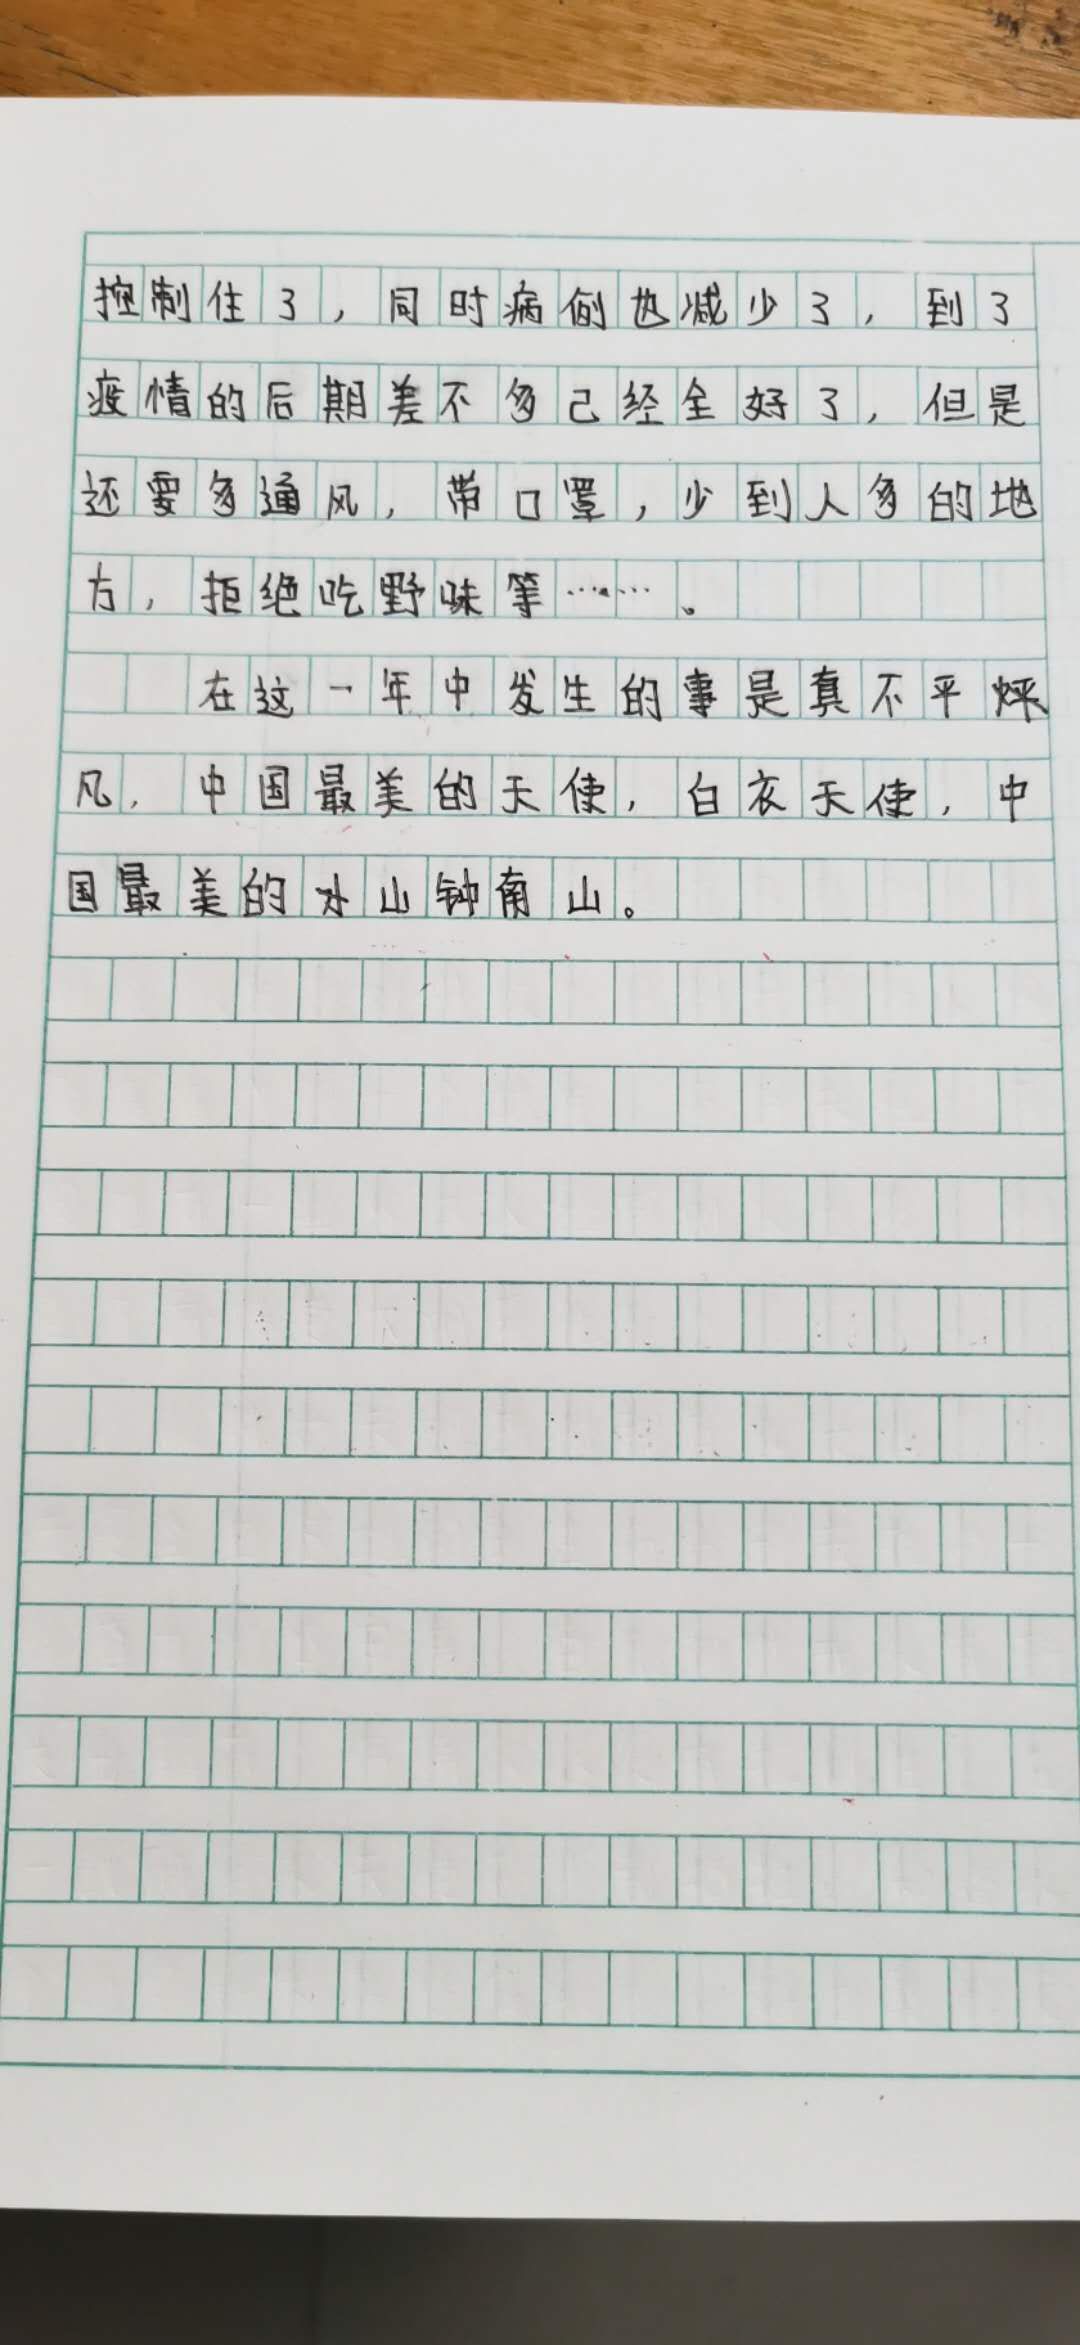 控制住了，同时病例也减少了，到了
疫情的后期差不多己经全好了，但是
还要多通风，带口罩，少到人多的地
方，拒绝吃野味等……。
在这一年中发生的事是真不平
凡，中国最美的天使，白衣天使，中
国最美的水山钟南山。